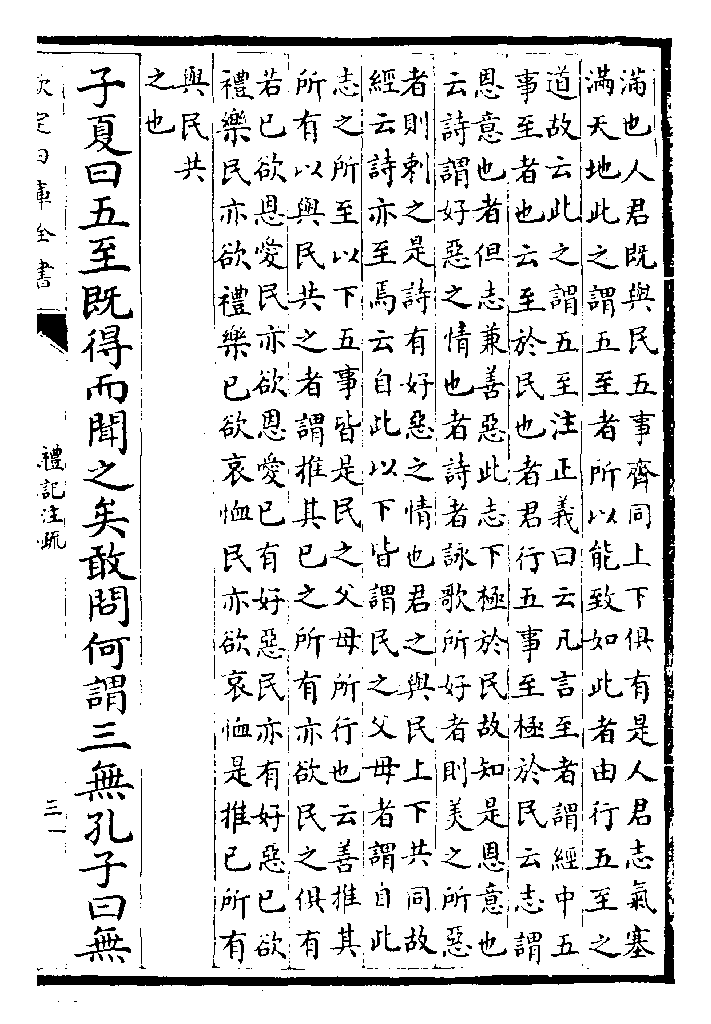 滿也人君既與民五事齊同上下俱有是人君志氣塞
滿天地此之謂五至者所以能致如此者由行五至之
道故云此之謂五至注正義曰云凡言至者謂經中五
事至者也云至於民也者君行五事至極於民云志謂
恩意也者但志兼善惡此志下極於民故知是恩意也
云詩謂好惡之情也者詩者詠歌所好者則美之所惡
者則刺之是詩有好惡之情也君之與民上下共同故
經云詩亦至焉云自此以下皆謂民之父母者謂自此
志之所至以下五事皆是民之父母所行也云善推其
所有以與民共之者謂推其已之所有亦欲民之俱有
若已欲恩愛民亦欲恩愛已有好惡民亦有好惡已欲
禮樂民亦欲禮樂已欲哀恤民亦欲哀恤是推已所有
與民共
之也
子夏曰五至既得而聞之矣敢問何謂三無孔子曰無
欽定四庫全書
禮記注疏
三